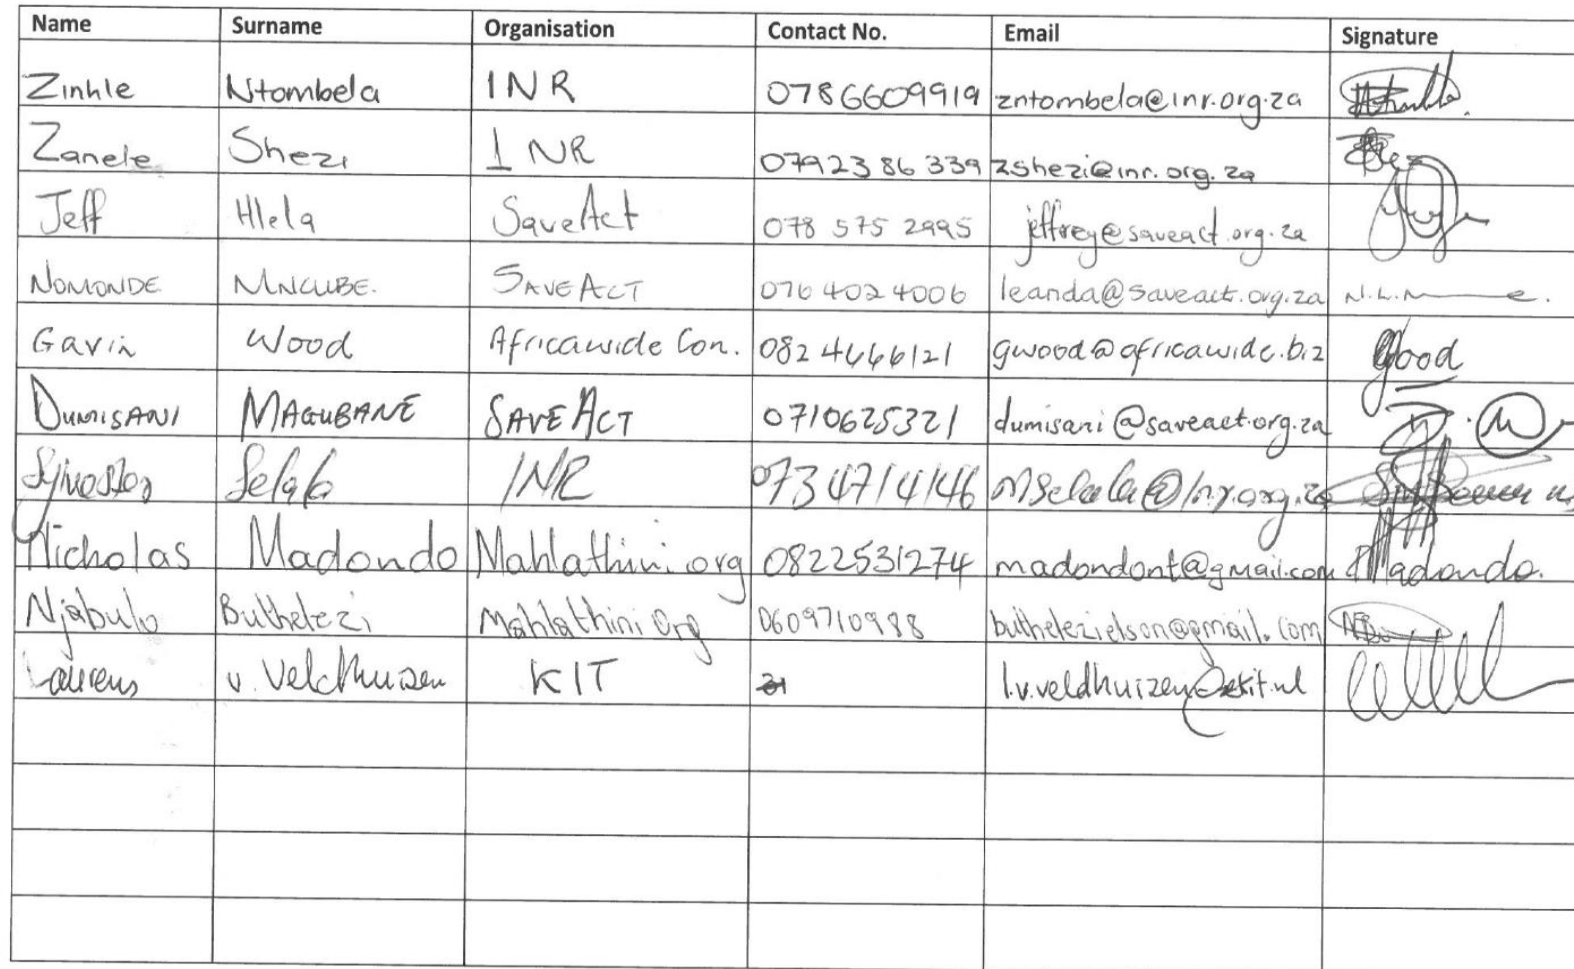 Name Surname Organisation Contact No. Email Signature
Zinhle Ntombela INR 0786609919 zntombela@inr.org.za
Zanele Shezi INR 0792386339 zshezi@inr.org.za
Jeff Hlela SaveAct 078 575 2995 jeffrey@saveact.org.za
NOMONDE MNCUBE. SAVEACT 076 402 4006 leanda@saveact.org.za
Gavin Wood Africawide Con. 082 4466121 gwood@africawide.biz gwood
DUMISANI MAGUBANE SAVEACT 0710625321 dumisani@saveact.org.za
Sylvester Selala INR 0734714146 mselala@inr.org.za
Nicholas Madondo Mahlathini.org 0822531274 madondont@gmail.com Madondo.
Njabulo Buthelezi Mahlathini Org 0609710988 buthelezielson@gmail.com
Laurens v. Veldhuizen KIT l.v.veldhuizen@kit.nl